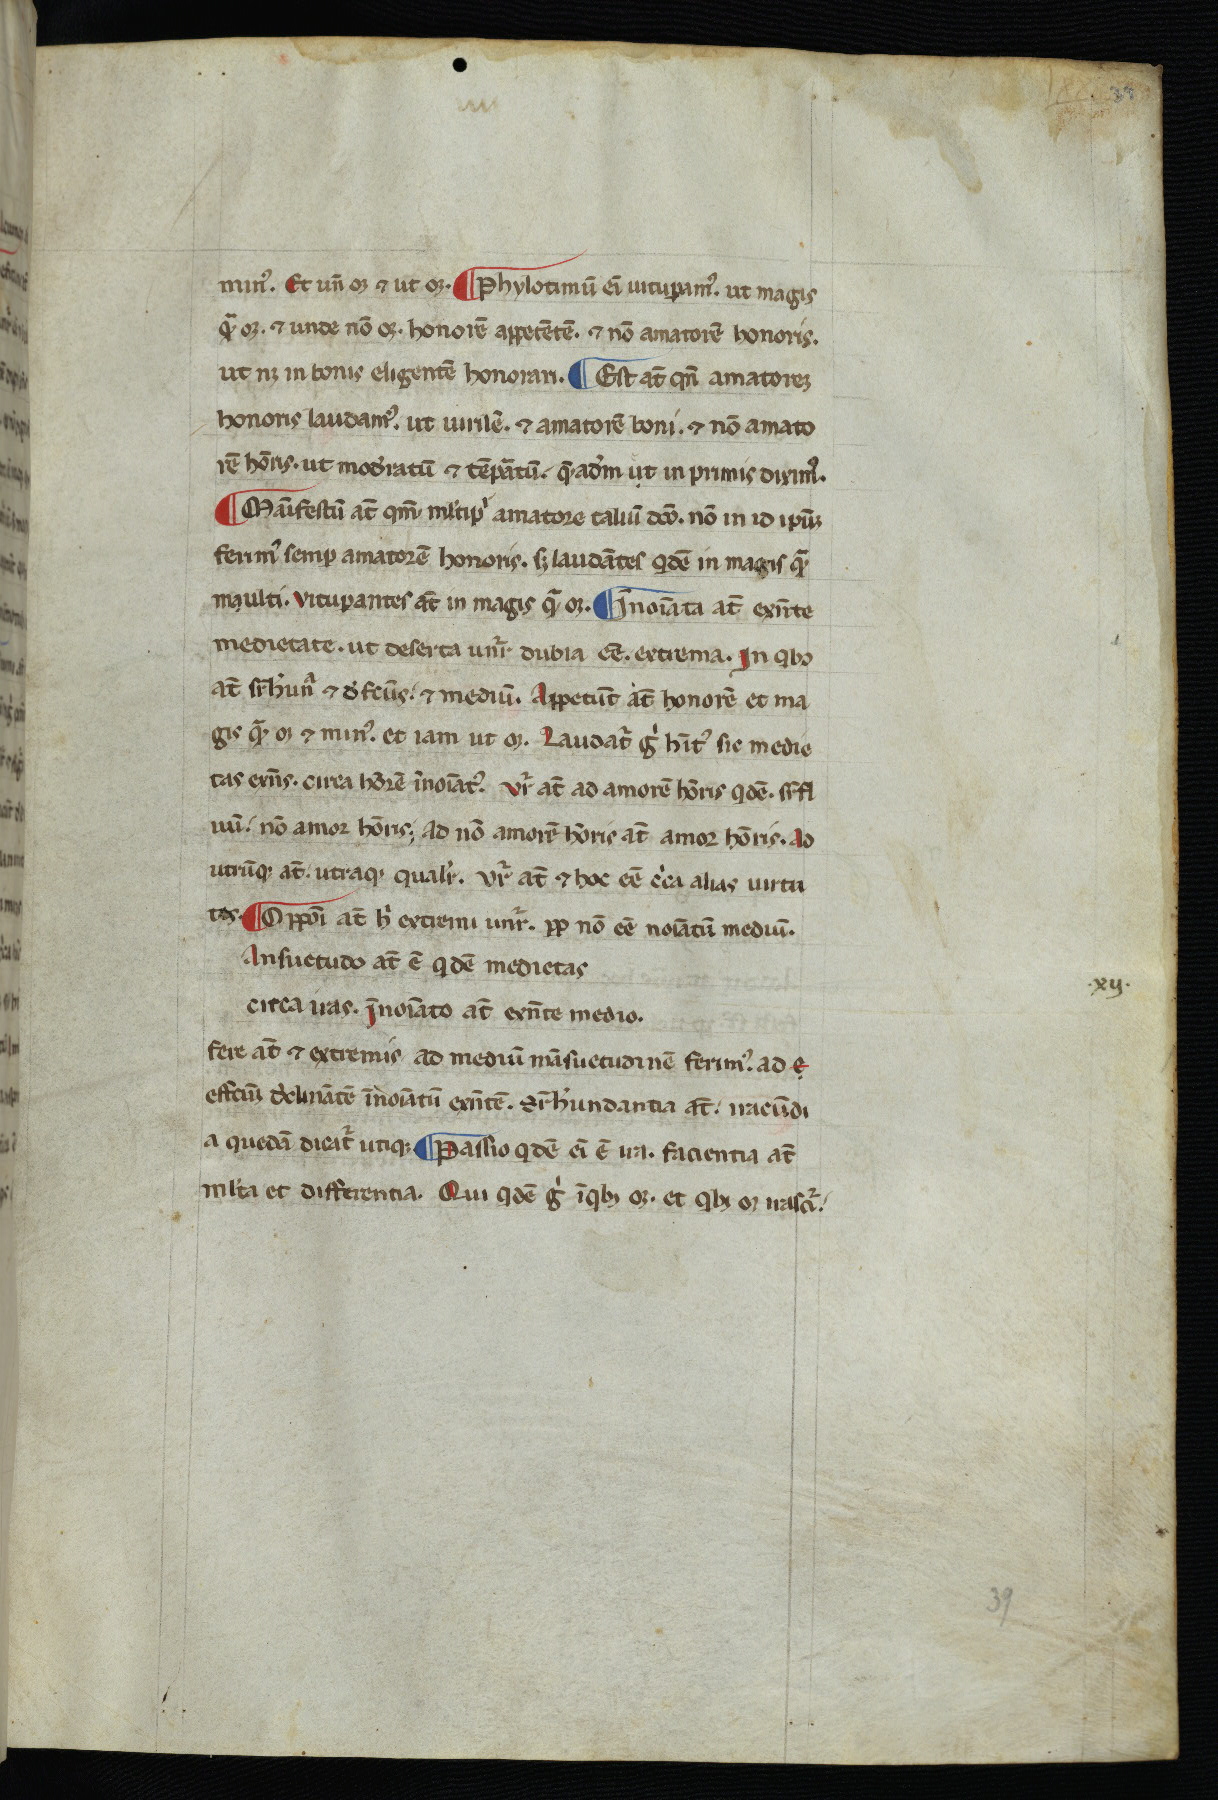 minꝰ. Et uñ oꝫ ⁊ ut oꝫ. ¶ Phylotimū ei̅ uitupamꝰ. ut magis
q̃ oꝫ. ⁊ unde nō oꝫ. honorē appetētē. ⁊ nō amatorē honoris.
ut nꝫ in bonis eligentē honorari. ¶ Est at̄ qn̄ amatoreꝫ
honoris laudamꝰ. ut uirilē. ⁊ amatorē boni. ⁊ nō amato
rē hōris. ut modatū ⁊ tēpātū. q̄ adm ut in primis diximꝰ.
¶ Māifestū at̄ qm̄ mltip̕ amatore taliū dc̄o. nō in id ipm̄
ferimꝰ semp amatorē honoris. sꝫ laudātes qdē in magis q̃
multi. vitupantes at̄ in magis q̃ oꝫ. ¶ Īnoīata at̄ exn̄te
medietate. ut deserta unr̄ dubia eē. extrema. In qbꝰ
at̄ sr̄hun̄ ⁊ dfcūs. ⁊ mediū. Appetūt at̄ honorē et ma
gis q̃ oꝫ ⁊ minꝰ. et iam ut oꝫ. Laudat̄ g̕ hītꝰ sic medie
tas exn̄s. circa hōrē īnoīatꝰ. vr̄ at̄ ad amorē hōris qdē. sr̄fl
uū. nō amor hōris. ad nō amorē hōris at̄ amor hōris. Ad
utrūqꝫ at̄. utraqꝫ qualr̕. vr̄ at̄ ⁊ hoc eē c̕ca alias uirtu
tes. ¶ Oppōi at̄ h̕ extremi unr̄. pp nō eē noīatū mediū.
Ansuetudo at̄ ē qdē medietas
circa iras. Īnoīato at̄ exn̄te medio.
fere at̄ ⁊ extremis ad mediū māsuetudinē ferimꝰ. ad
effcūs d̕clinātē īnoīatū exn̄tē. Sr̄hundantia at̄. iracūdi
a quedā dicit̄ utiqꝫ ¶ Passio qdē ei̅ ē ira. facientia at̄
mlta et differentia. Qui qdē g̕ īqbꝰ oꝫ. et qbꝰ oꝫ irascit̄.
.xij.
39